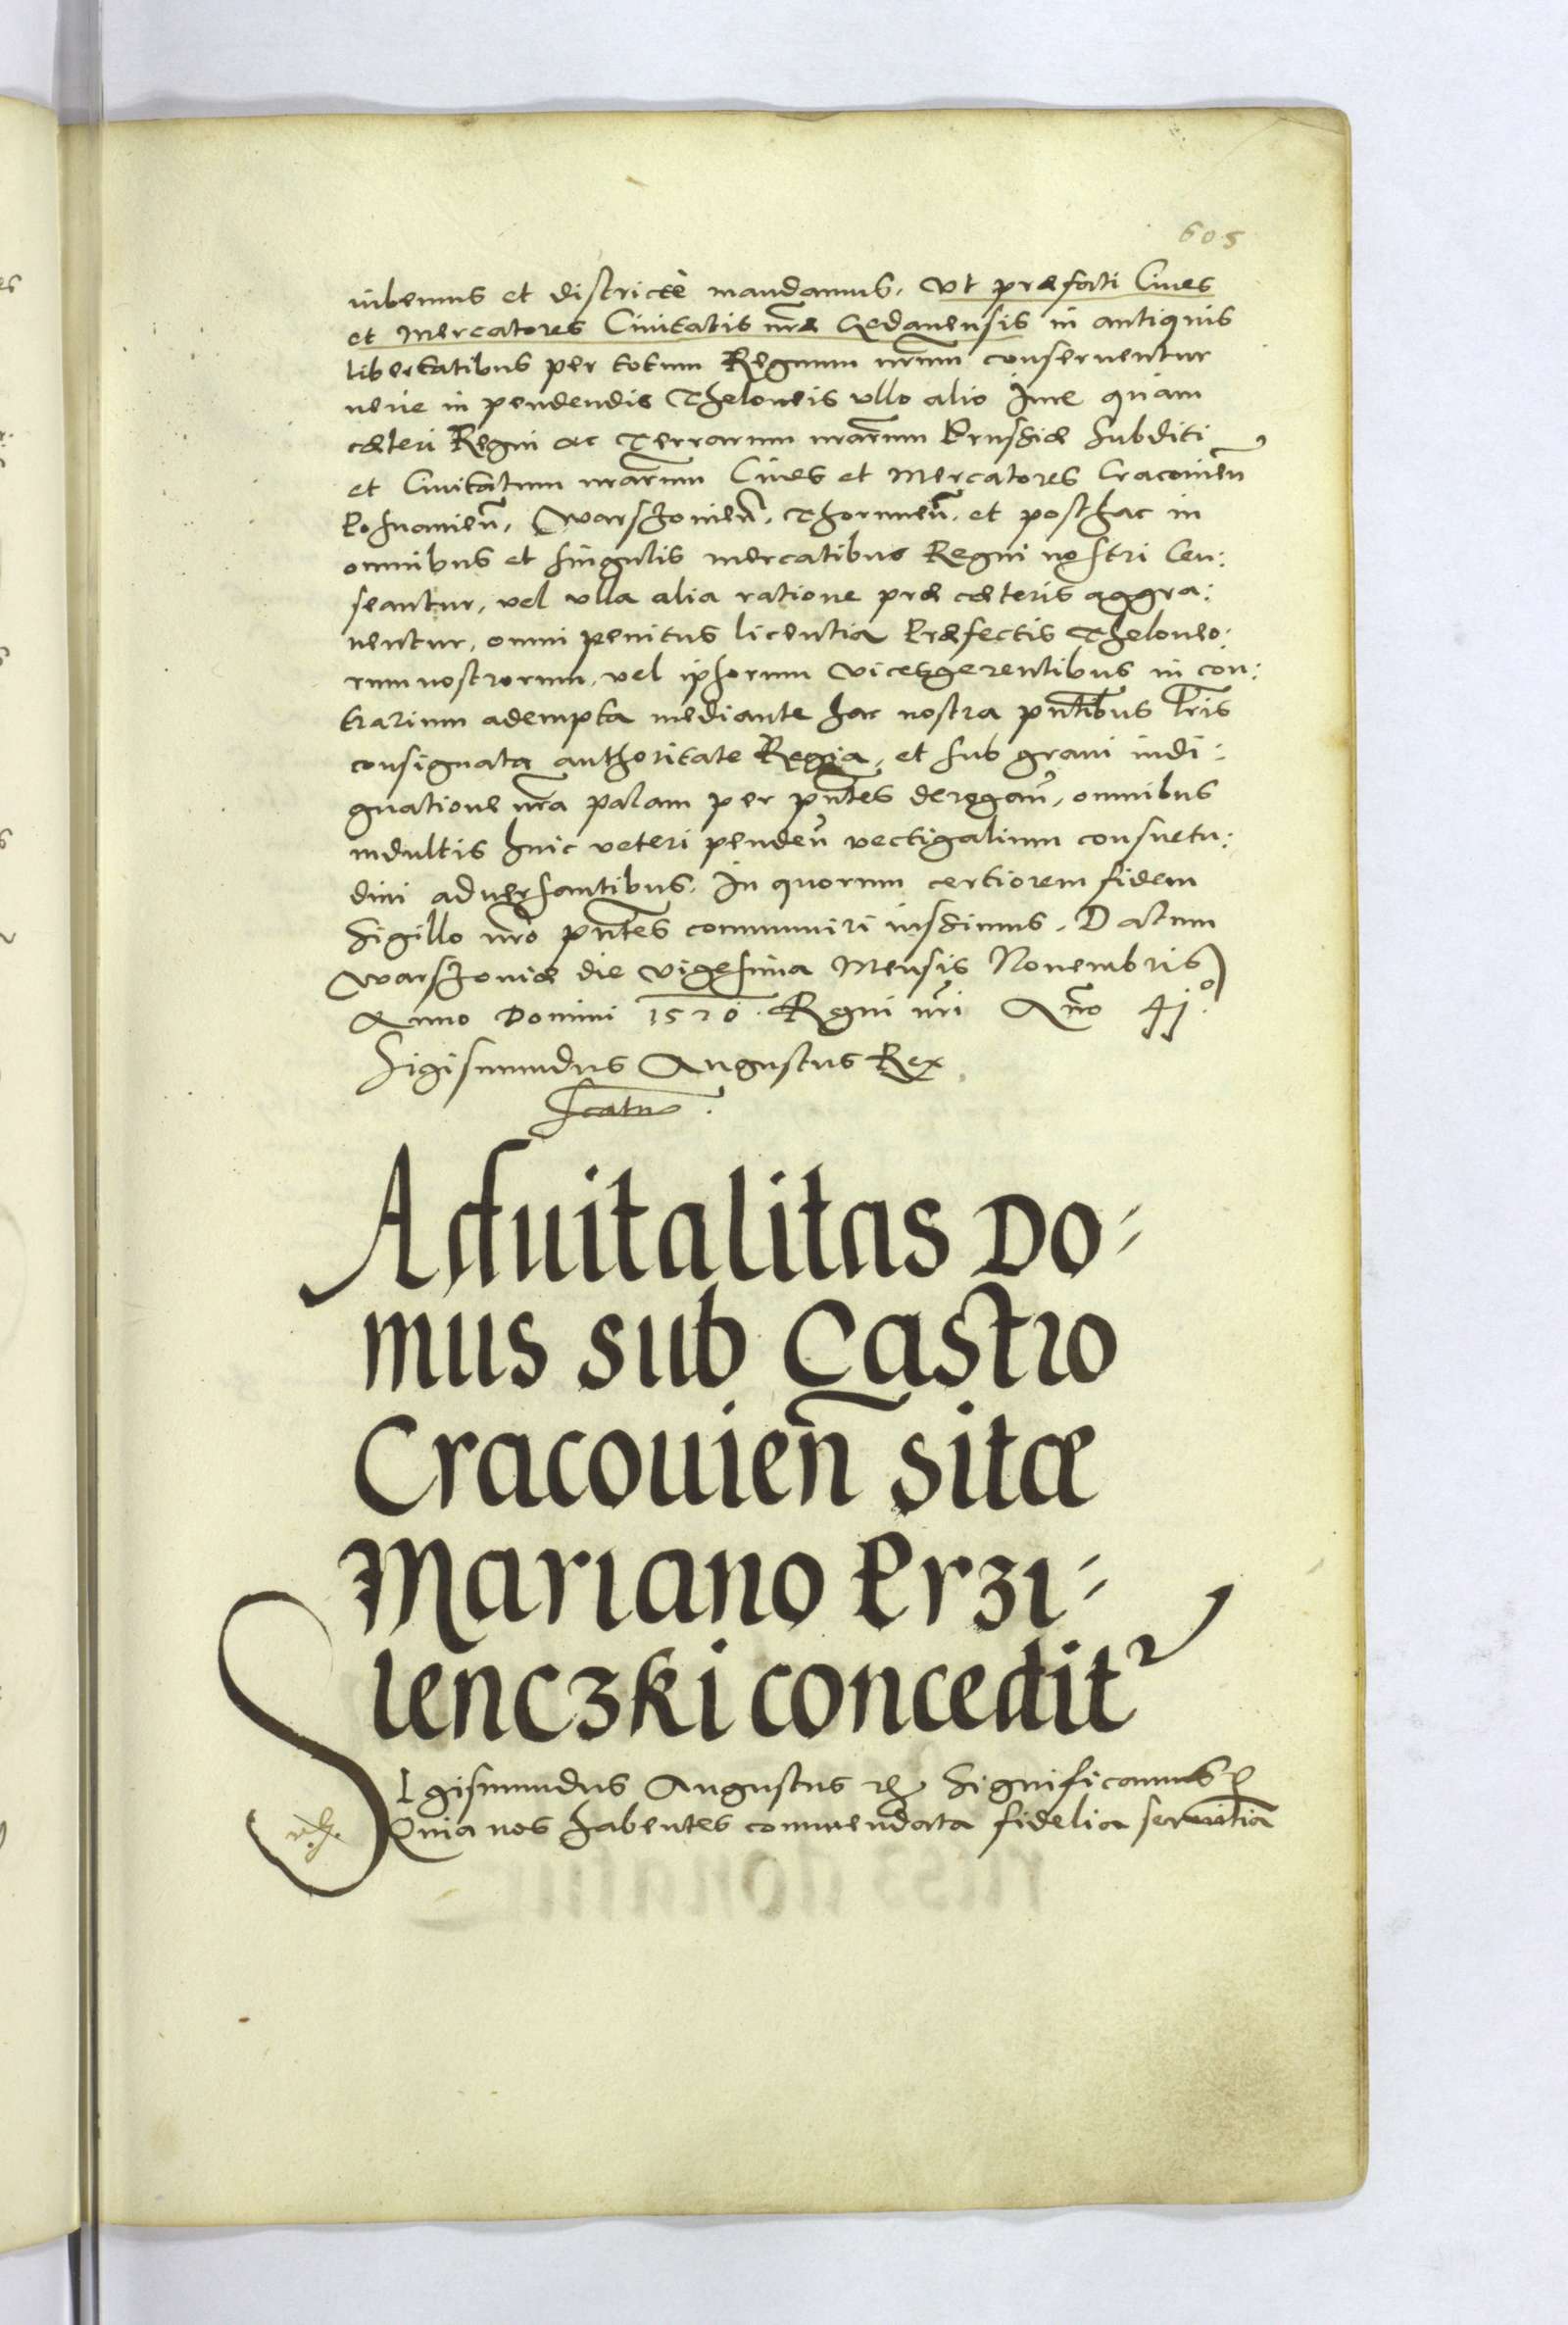 605
iubemus et districtè mandamus, Vt præfati Ciues
et Mercatores Ciuitatis nr̃æ Gedanensis in antiquis
libertatibus per totum Regnum nr̃um conseruentur
neue in pendendis Theloneis vllo alio Iure quam
cæteri Regni ac Terrarum nr̃arum Prussiæ Subditi
et Ciuitatum nr̃arum Ciues et Mercatores Cracouień
Posnanień, Warszouień, Thoruneń, et posthac in
omnibus et singulis mercatibus Regni nostri Cen:
seantur, vel vlla alia ratione præ cæteris aggra:
uentur, omni penitus licentia Præfectis Theloneo:
rum nostrorum, vel ipsorum Vicesgerentibus in con:
trarium adempta mediante hac nostra pñtibus lr̃is
consignata authoritate Regia, et sub graui indi:
gnatione nr̃a palam per pñtes derogań, omnibus
indultis huic veteri pendeń vectigalium consuetu:
dini aduersantibus. In quorum certiorem fidem
Sigillo nr̃o pñtes communiri iussimus. Datum
Warszouiæ die vigesima Mensis Nouembris
Anno Domini 1570. Regni nr̃i Añno 41.º
Sigismundus Augustus Rex
Aduitalitas Do-
mus sub Castro
Cracouień sitæ
Mariano Przi-
lenczki concedit²
SIgismundus Augustus Significamus
Quia nos habentes commendata fidelia seruitia